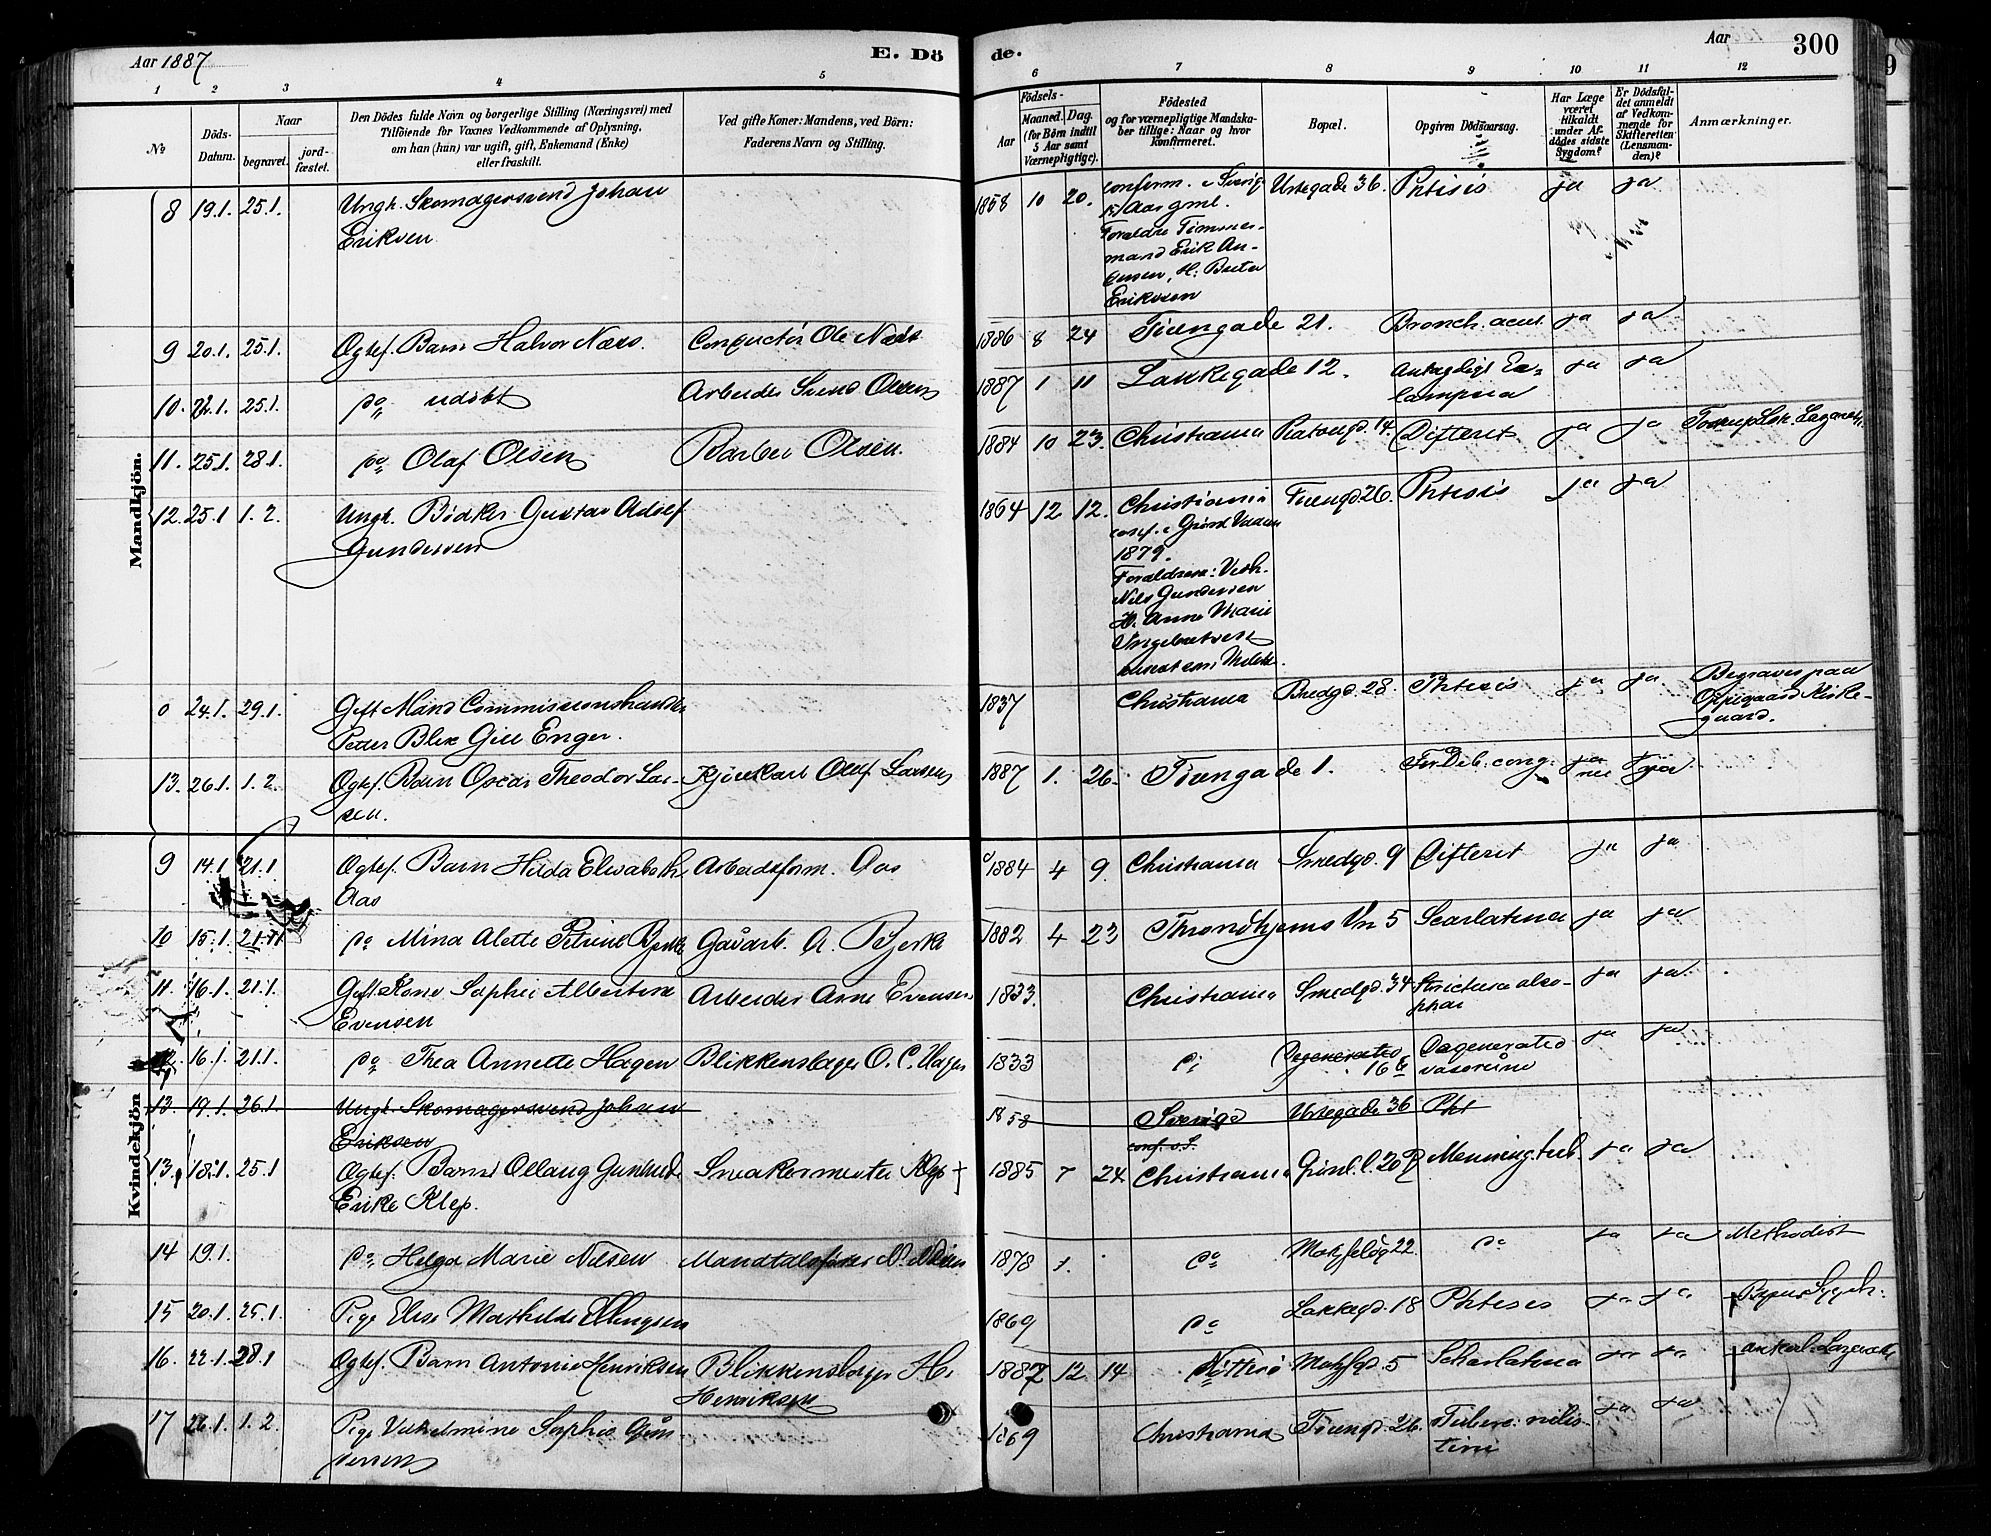 Aar 1887
E. Dö
de.
Aar
300
1 2 3 4 5 6 7 8 9 10 11 12
No
Döds-Datum.
Naar
begravet.
jord-fæstet.
Den Dödes fulde Navn og borgerlige Stilling (Næringsvei) med
Tilföiende for Voxnes Vedkommende af Oplysning,
om han (hun) var ugift, gift, Enkemand (Enke)
eller fraskilt.
Ved gifte Koner: Mandens, ved Börn:
Faderens Navn og Stilling.
Födsels-
Aar
Maaned. Dag.
(for Børn indtil
5 Aar samt
Værnepligtige).
Födested
og for værnepligtige Mandska-
ber tillige: Naar og hvor
konfirmeret.
Bopæl.
Opgiven Dödsaarsag.
Har Læge
været
tilkaldt
under Af-
dødes sidste
Sygdom?
Er Dödsfal-
det anmeldt
af Vedkom-
mende for
Skifteretten
(Lensman-
den)?
Anmærkninger.
Mandkjön.
8 19.1. 25.1. Ungk. Skomagersvend Johan
Eriksen
1858 10 20. conferm. i Sverig
15 Aar gml.
Foraldre Timmer-
mand Erik An-
Eriksen
Urtegade 36. Phtisis ja ja
9 20.1. 25.1. Ogtef. Barn Halvor Næss. Conductör Ole Næss 1886 8 24 Tøiengade 21. Bronch. acut. ja ja
10. 22.1. 25.1. do udöbt Arbeider Svend Olsen 1887 1 11 Lakkegade 12. Antagligt Ec-
lampsia ja ja
11. 25.1. 28.1. do Olaf Olsen Barber Olsen. 1884 10 23. Christiania 14. Difterit ja ja
12. 25.1 1.2. Ungk. Bödker Gustav Adolf
Gundersen
1864 12 12. Christiania
conf. i Grönl
1879.
Foraldrene:
Nils Gundersen
H. Anne Marie
Tøiengd 26. Phtisis ja ja
0 24.1. 29.1. Gift Mand Commissionshandler
Petter Blix Gill Enger.
1837 Christiania Bredgd. 28. Phtisis ja ja Begraves paa
Oppegaard Kirke-
gaard.
13. 26.1. 1.2. Ogtef. Barn Oscar Theodor Lar-
sen.
Olaf Larsen 1887 1. 26. Tøiengade 1. Deb. cong. ja
Kvindekjön
9 14.1. 21.1 Ogtef. Barn Hilda Elisabeth
Aas
Arbeidsform. Aas 1884 4 9. Christiania Smedgd. 9 Difterit ja ja
10 15.1. 21.1. do Mina Alette Petrine Bjerke Gaardarb. A. Bjerke 1882 4 23 Throndhjems Vn 5 Scarlatina ja ja
11. 16.1. 21.1. Gift Kone Sophie Albertine
Evensen
Arbeider Arne Evensen 1833. Christiania Smedgd. 34 ja ja
12. 16.1. 21.1. do Thea Annette Hagen Blikkenslager O. C. Hagen 1833 do 16 Degeneratio ja ja
13. 19.1. 26.1. Ungk. Skomagersvend Johan
Eriksen
1858 Sverige
conf. i S.
Urtegade 36 Pht
13. 18.1. 25.1 Ogtef. Barn Ollaug Gunhild
Erike Klep.
Snekkermester Klep + 1885 7 24 Christiania Mening. tub. ja ja
14 19.1. do Helga Marie Nilsen Mandtalsfører N. Nilsen 1878 1. do 22. do ja ja Methodist
15 20.1. 25.1. Pige Elise Mathilde Ellingsen 1869 do Lakkegd. 18 Phtisis ja ja
16. 22.1. 28.1 Ogtef. Barn Antonie Henriksen Blikkenslager H.
Henriksen
1882 12 14 5 Scharlatina ja ja
17 26.1. 1.2. Pige Vilhelmine Sophie
1869 Christiania Tøiengd. 26. ja ja